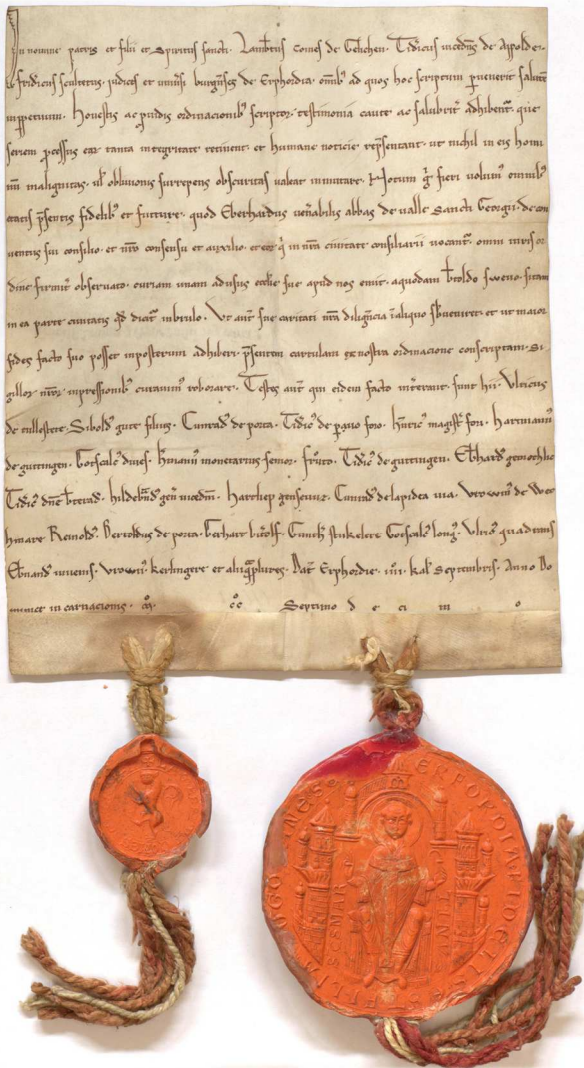 In nomine patris et filii et Spiritus sancti. Lambt̄us comes de Glichen. Tidicus vicedn̄s de Appolde.
fridicus scultetus. judices et univ̄si burgn̄ses de Erphordia. omīb; ad quos hoc scriptum pervenerit salutē
inp̄petuum. Honestis ac p̄vidis ordinacionib; scriptor. testimonia caute ac salubrit̄ adhibent̄. que
seriem p̄cessus ear tanta integritate retinent. et humane noticie rep̄sentant. ut nichil in eis homi
nū malignitas. ul̄ oblivionis surrepens obscuritas valeat inmutare. Notum ḡ fieri volum; omnib;
etatis p̄sentis fidelib; et future. quod Eberhardus ven̄abilis abbas de valle Sancti Georgii. de con
ventus sui consilio. et nr̄o consensu et auxilio. et eor q̄ in nr̄a civitate consiliarii vocant̄. omni iuris or
dine firmit̄ observato. curiam unam adusus eccl̄ie sue apud nos emit. aquodam bt̄oldo swevo. sitam
in ea parte civitatis qd̄ dicit̄ inbrulo. Ut aut̄ sue caritati nr̄a dilign̄cia ī aliquo sb̄veniret. et ut maior
fides facto suo posset inposterum adhiberi. p̄sentem cartulam ex nostra ordinacione conscriptam. Si
gillor nr̄or inpressionib; curavim; roborare. Testes aut̄ qui eidem facto int̄erant. sunt hii. Ulricus
de tullestete. Sibold; gute filius. Cunrad; de porta. Tidic; de pavo foro. hn̄ric; magist̄ fori. Hartmann;
de guttingen. Gotscalc; dives. hm̄ann; monetarius senior. Tidic; de guttingen. Eb̄hard;
Tidic; hildebn̄d; Hartliep gensevuz. Cunrad; de lapidea via. vrowin; de
hmare Reinold; Bertoldus de porta. Gerhart Gotscalc; long; Ulric; quadrans
Eb̄nand; iuvenis. vrowin; kerlingere et alii q̄plures. Dat̄ Erphordie. iiii. kal̄ Septembris. Anno Do
minice in carnacionis. Septimo d e ci m o
ERFORDIA FIDELIS E FILIA MOGO NES
SCS MAR TINVS